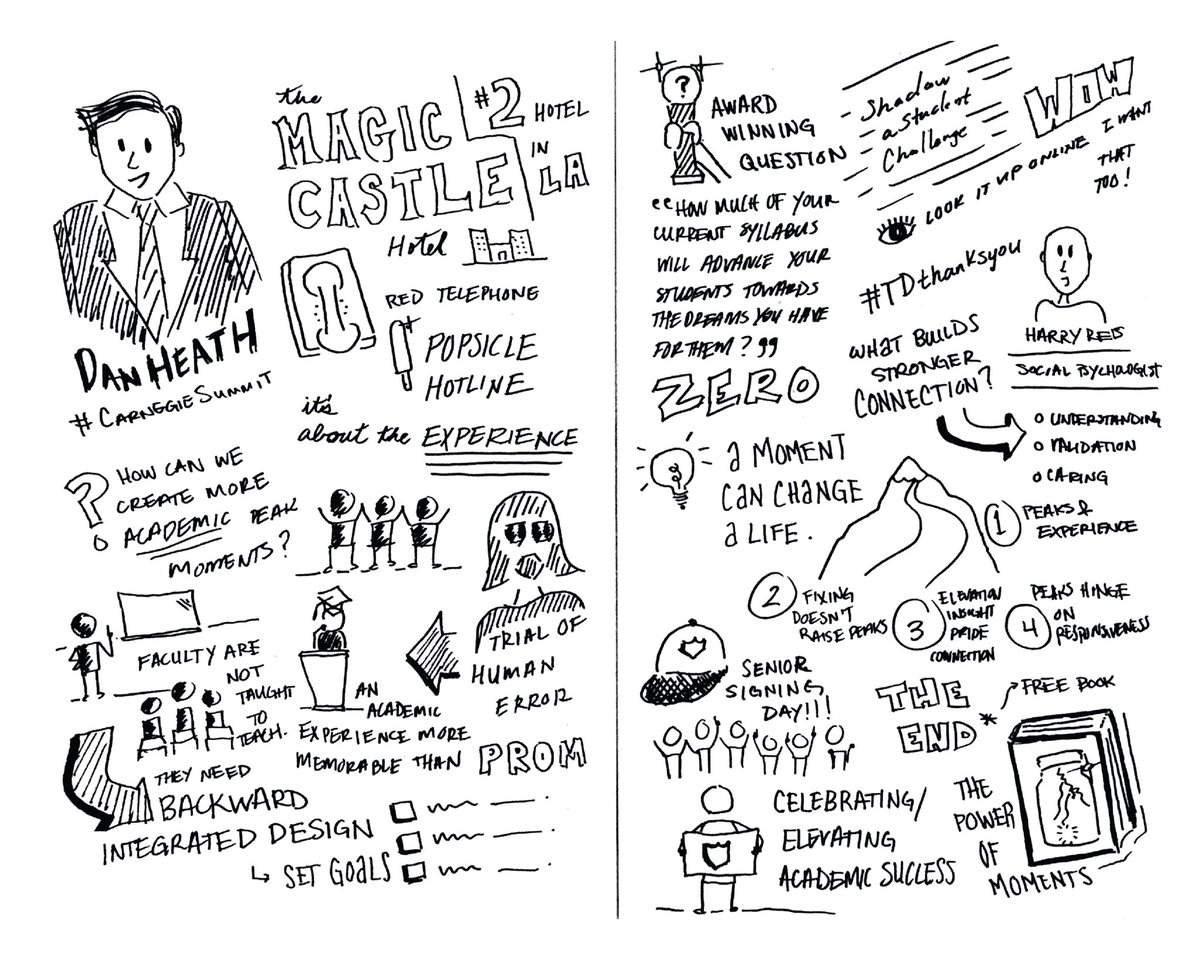 the
MAGIC
CASTLE
Hotel
#2 HOTEL
IN
LA
RED TELEPHONE
POPSICLE
HOTLINE
it's
about the EXPERIENCE
DAN HEATH
#CARNEGIESUMMIT
? HOW CAN WE
CREATE MORE
ACADEMIC PEAK
MOMENTS?
FACULTY ARE
NOT
TAUGHT
TO
TEACH.
TRIAL OF
HUMAN
ERROR
AN
ACADEMIC
EXPERIENCE MORE
MEMORABLE THAN PROM
THEY NEED
BACKWARD
INTEGRATED DESIGN
↳ SET GOALS
?
AWARD
WINNING
QUESTION
"HOW MUCH OF YOUR
CURRENT SYLLABUS
WILL ADVANCE YOUR
STUDENTS TOWARDS
THE DREAMS YOU HAVE
FOR THEM?"
ZERO
Shadow
a student
Challenge
LOOK IT UP ONLINE
WOW
I WANT
THAT
TOO!
#TDthanksyou
WHAT BUILDS
STRONGER
CONNECTION?
HARRY REIS
SOCIAL PSYCHOLOGIST
o UNDERSTANDING
o VALIDATION
o CARING
a MOMENT
CAN CHANGE
a LIFE.
1 PEAKS &
EXPERIENCE
2 FIXING
DOESN'T
RAISE PEAKS
3 ELEVATION
INSIGHT
PRIDE
CONNECTION
4 PEAKS HINGE
ON
RESPONSIVENESS
SENIOR
SIGNING
DAY!!!
CELEBRATING/
ELEVATING
ACADEMIC SUCCESS
THE
END*
FREE BOOK
THE
POWER
OF
MOMENTS